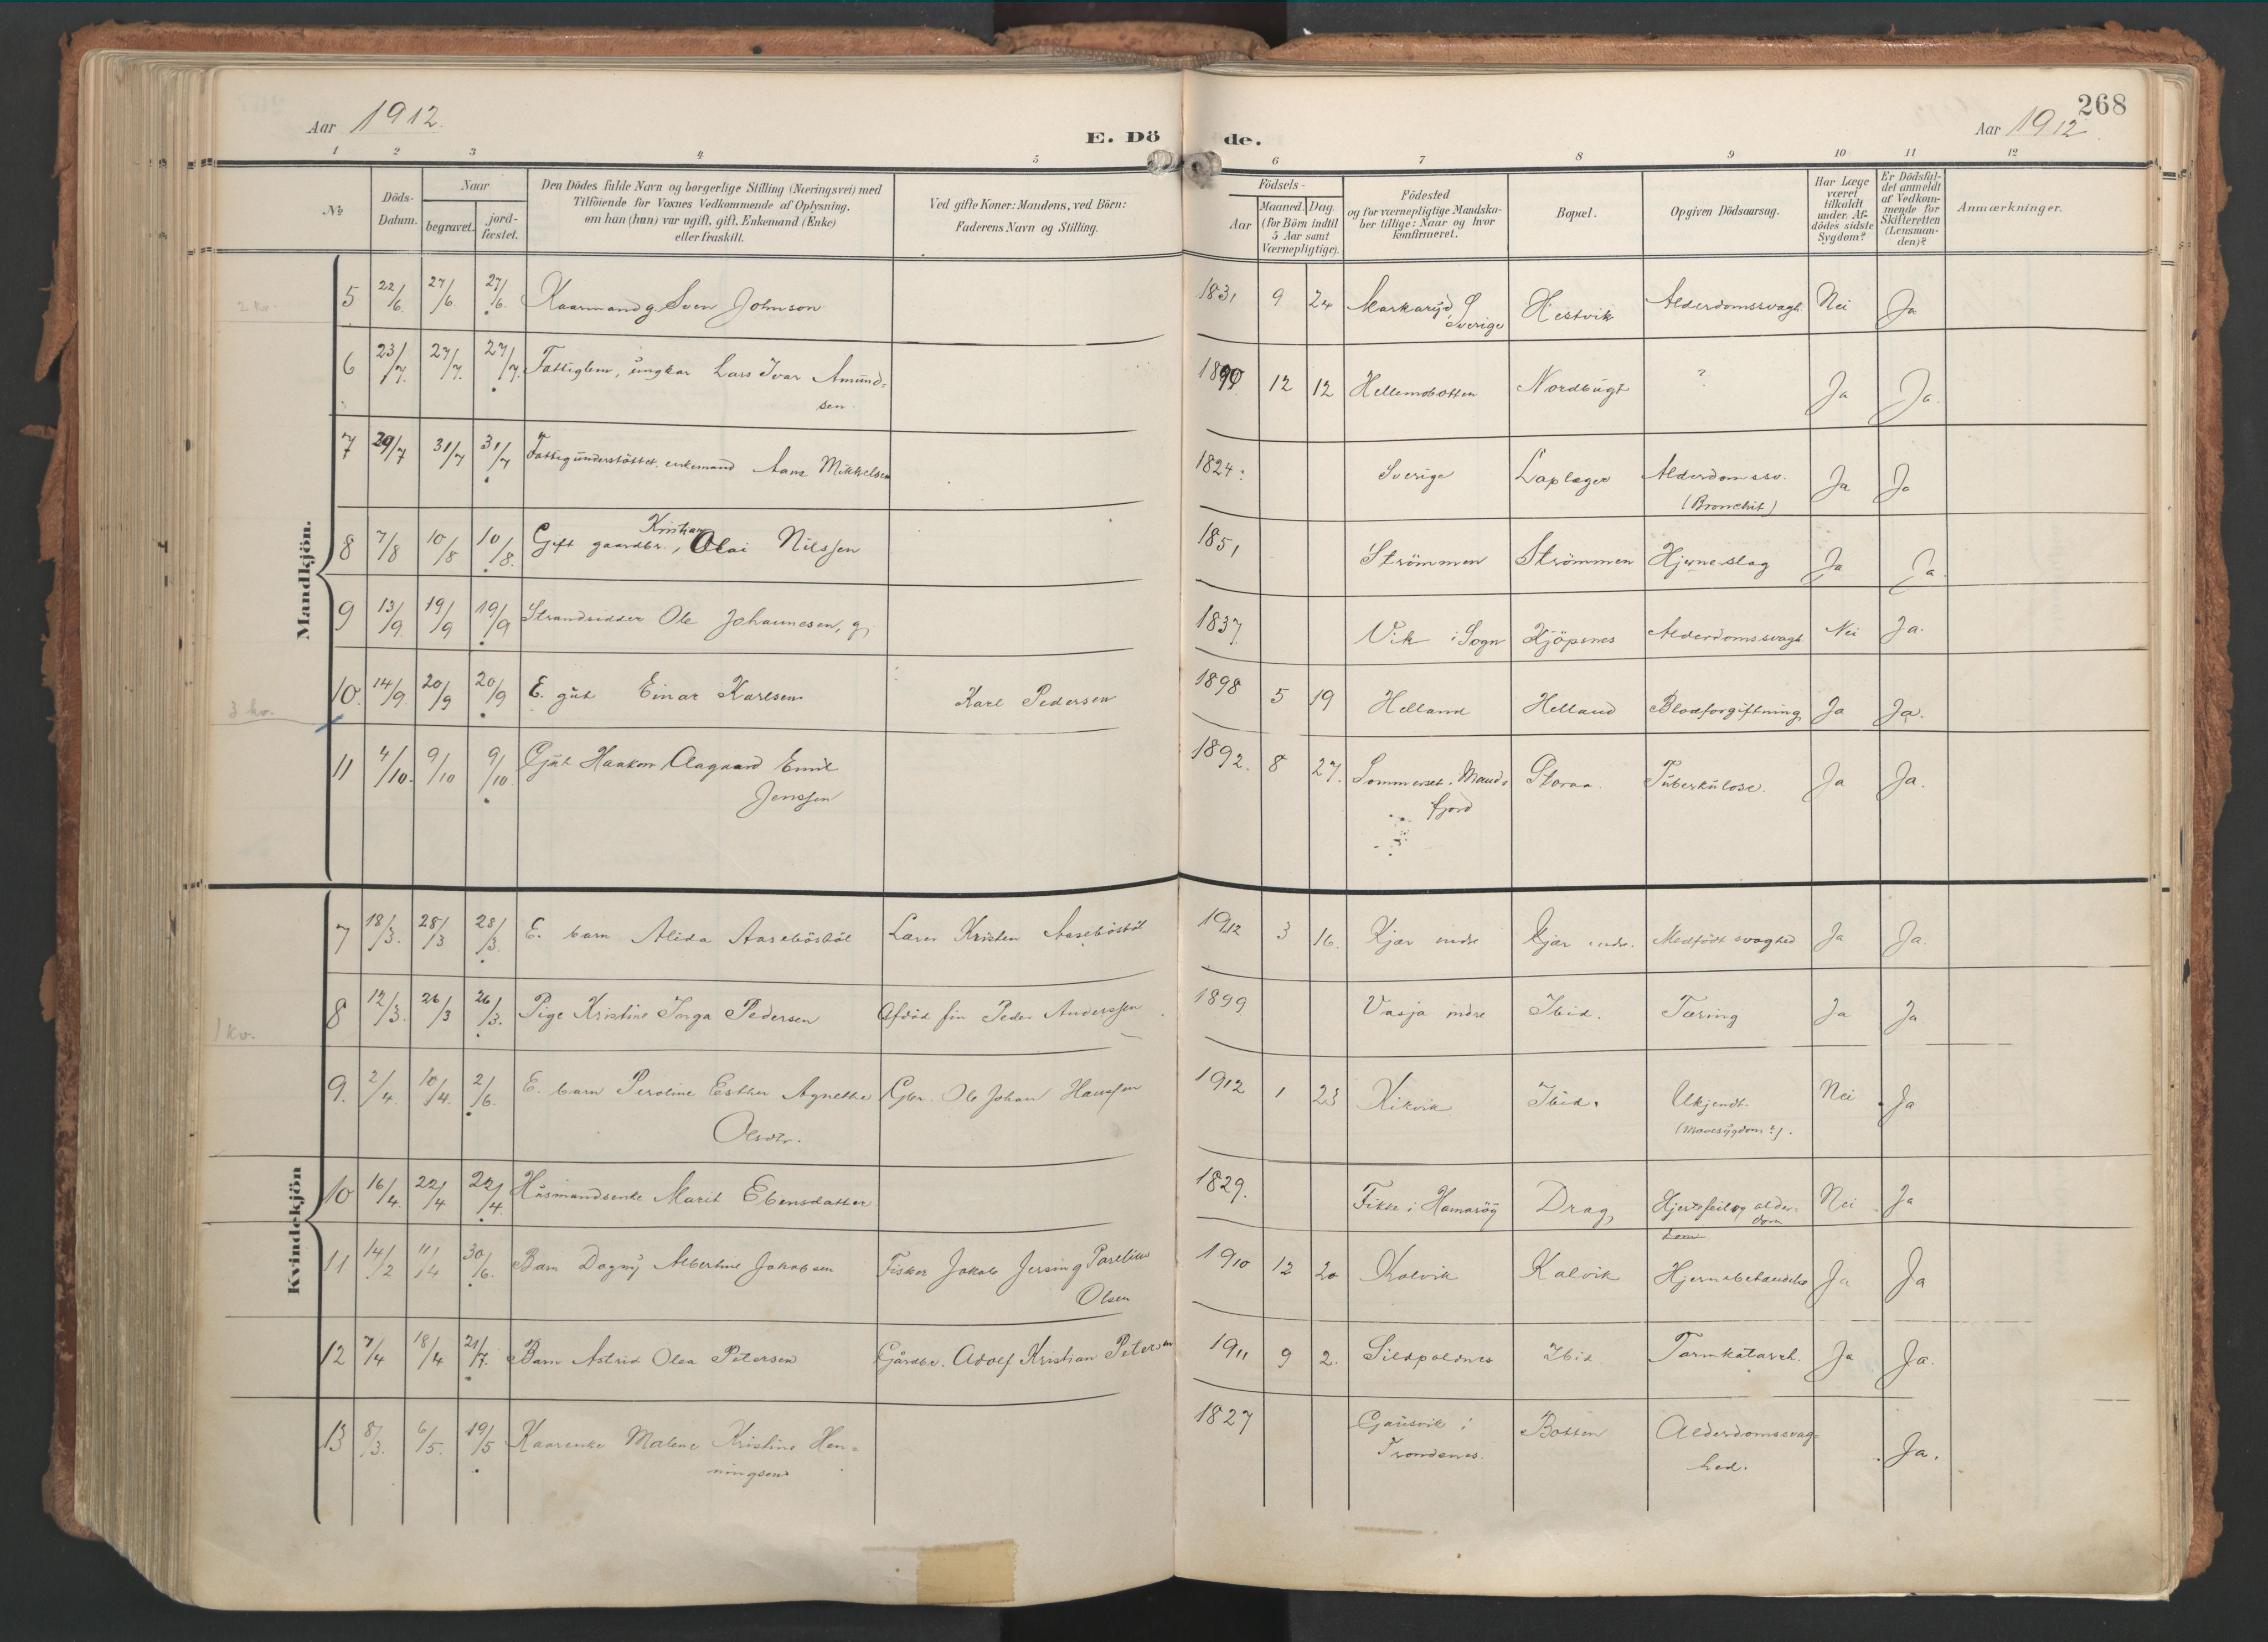 268
Aar 1912.
E. Dö de.
Aar 1912.
1 2 3 4 5 6 7 8 9 10 11 12
No
Döds-Datum.
Naar
begravet.
jord-fæstet.
Den Dödes fulde Navn og borgerlige Stilling (Næringsvei) med
Tilföiende for Voxnes Vedkommende af Oplysning,
om han (hun) var ugift, gift, Enkemand (Enke)
eller fraskilt.
Ved gifte Koner: Mandens, ved Börn:
Faderens Navn og Stilling.
Födsels-
Aar
Maaned. Dag.
(for Börn indtil
5 Aar samt
Værnepligtige).
Födested
og for værnepligtige Mandska-
ber tillige: Naar og hvor
konfirmeret.
Bopæl.
Opgiven Dödsaarsag.
Har Læge
været
tilkaldt
under Af-
dödes sidste
Sygdom?
Er Dödsfal-
det anmeldt
af Vedkom-
mende for
Skifteretten
(Lensman-
den)?
Anmærkninger.
Mandkjön.
2 kv.
5 22/6 27/6 27/6. Kaarmand g. Sven Johnson 1831 9 24 Markaryd, Sverige Hestvik Alderdomssvagh. Nei Ja
6 23/7. 27/7. 27/7. Fattiglem, ungkar Lars Ivar Amund-
sen. 1890 12 12 Hellemobotten Nordbugt ? Ja Ja.
7 29/7 31/7 31/7 Fattigunderstöttet, enkemand Aanz Mikkelsen 1824. Sverige Laplæger Alderdomssv.
(Bronchit) Ja Ja
8 7/8 10/8 10/8. Gift gaardbr., Kristian Olai Nilssen 1851 Strömmen Strömmen Hjerneslag Ja Ja.
9 13/9. 19/9 19/9 Strandsidder Ole Johannesen, g. 1837. Vik i Sogn Kjöpsnes Alderdomssvagh Nei Ja.
3 kv.
10. 14/9. 20/9 20/9 E. gut Einar Karlsen Karl Pedersen 1898 5 19 Helland Helland Blodforgiftning Ja Ja.
11 4/10. 9/10 9/10 Gut Haakon Aagaard Emil
Jenssen 1892. 8 27. Sommerset. Mands-
fjord Storaa. Tuberkulose. Ja Ja.
Kvindekjön
7 18/3. 28/3 28/3. E. barn Alida Aaseböstöl Lars Kristen Aaseböstöl 1912 3 16. Kjær indre Kjær indr. Medfödt svaghed Ja Ja.
1 kv.
8 12/3. 26/3 26/3. Pige Kristine Inga Pedersen Afdöd fin Peder Anderssen 1899 Vasja indre Ibid. Tæring Ja Ja
9. 2/4. 10/4. 2/6. E. barn Peroline Esther Agnethe
Olsdtr. Gbr. Ole Johan Hanssen 1912 1 23 Kikvik Ibid. Ukjendt.
(Mavesygdom?). Nei Ja
10 16/4. 22/4 22/4. Husmandsenke Marit Ebensdatter 1829. Fikke i Hamaröy Drag, Hjertefeil og alder-
dom Nei Ja
11 14/2 11/4 30/6. Barn Dagny Albertine Jakobsen Fisker Jakob Jersing Parelius
Olsen 1910 12 20 Kalvik Kalvik Ja Ja
12 7/4 18/4 21/7. Barn Astrid Olea Petersen Gårdbr. Adolf Kristian Petersen 1911 9 2. Sildpoldnes Ibid Tarmkatarrh. Ja Ja.
13 8/3. 6/5. 19/5 Kaarenke Malene Kristine Hen-
ningsen 1827 Gausvik i
Trondenes. Botten Alderdomssvag-
hed. Ja.